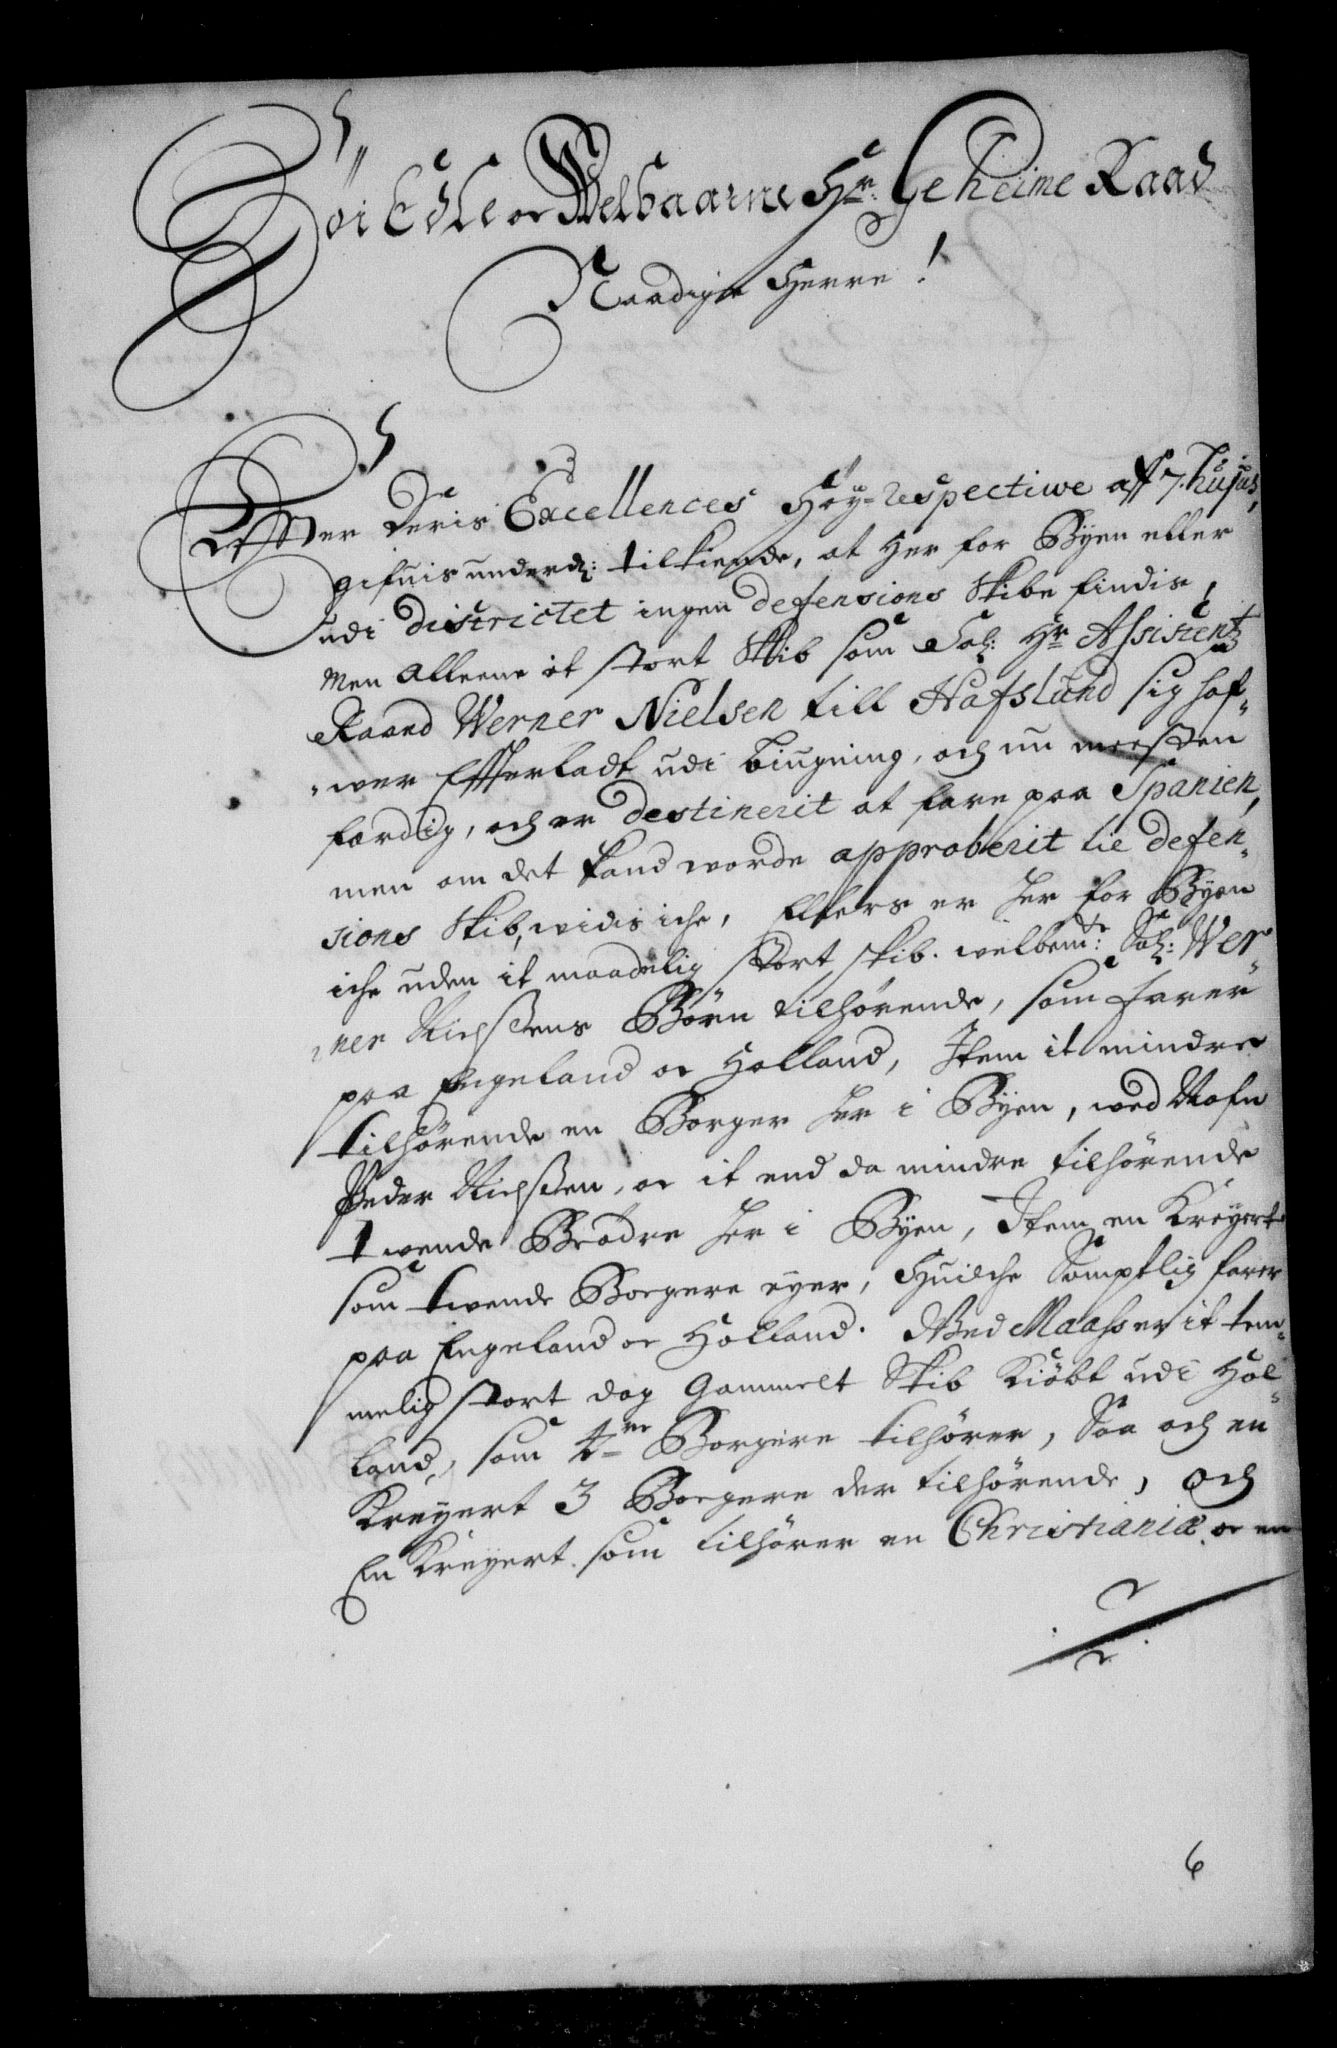 Höi Edle oc Welbaarne Hr: Geheime Raad
Naadige Herre!
Effter Deris Excellences Höy-respective aff 7. hujus,
gifuis underd: tilkiende, at her for Byen eller
udi districtet ingen defensions Skibe findis,
Men alleene it stort Skib som Sal: Hr Assistentz
Raad Werner Nielsen till Hafslund sig haf-
wer Effterladt udi biugning, och nu meesten
færdig, och er destinerit at fare paa Spanien,
men om det kand worde approberit tie defen-
sions Skib, widis iche, Ellers er her for Byen
iche uden it maadelig stort skib. welbemte: Sal: Wer-
ner Nielssens Börn tilhörende, som farer
paa Engeland oc Holland, Item it mindre
tilhörende en Borger her i Byen, wed Nafn
Peder Nielssen, oc it end da mindre tilhörende
twende Brödre her i Byen, Item en Kreyert
som twende Borgere eyer, Huilche Samptlig farer
paa Engeland oc Holland. Wed Maass er it tem-
melig stort dog Gammelt Skib Kiöbt udi Hol-
land, som 4re Borgere tilhörer, Saa och en
Kreyert 3 Borgere der tilhörende, och
En Kreyert som tilhører en Christianiæ oc en
6